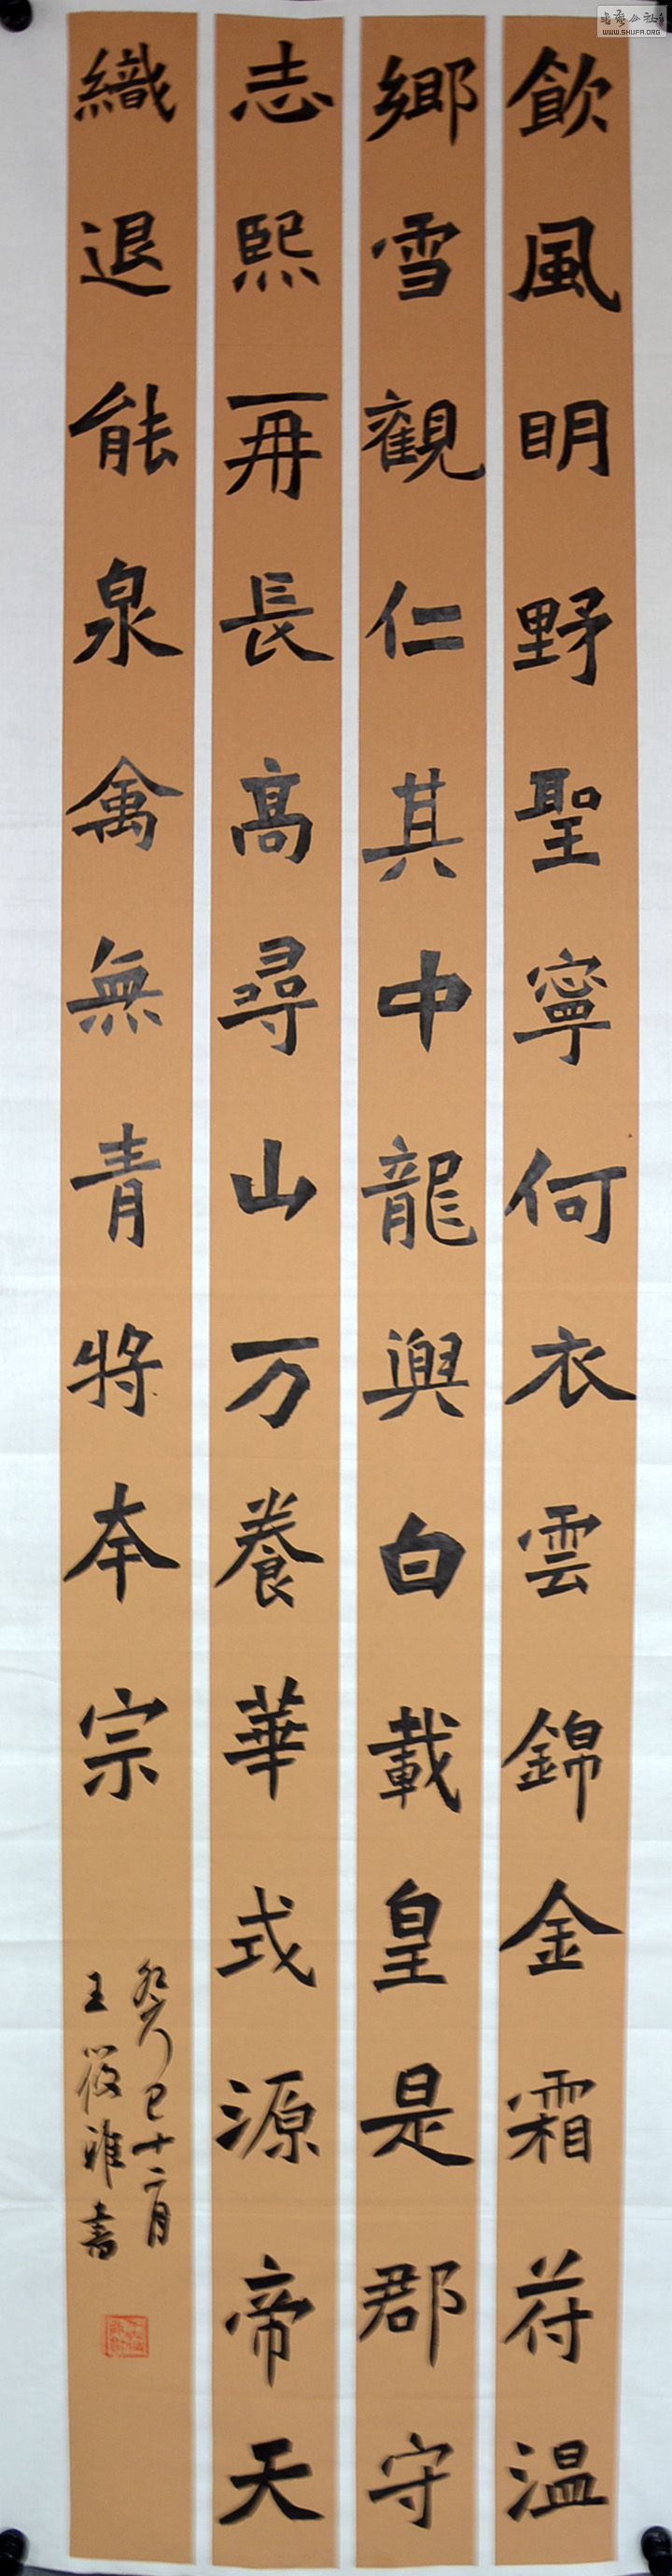 飲風明野聖寧何衣雲錦金霜苻温
鄉雪觀仁其中龍興白載皇是郡守
志熙再長髙尋山万養華式源帝天
織退能泉禽無青将本宗
癸巳十二月
王筱雅書
WWW.SHUFA.ORG